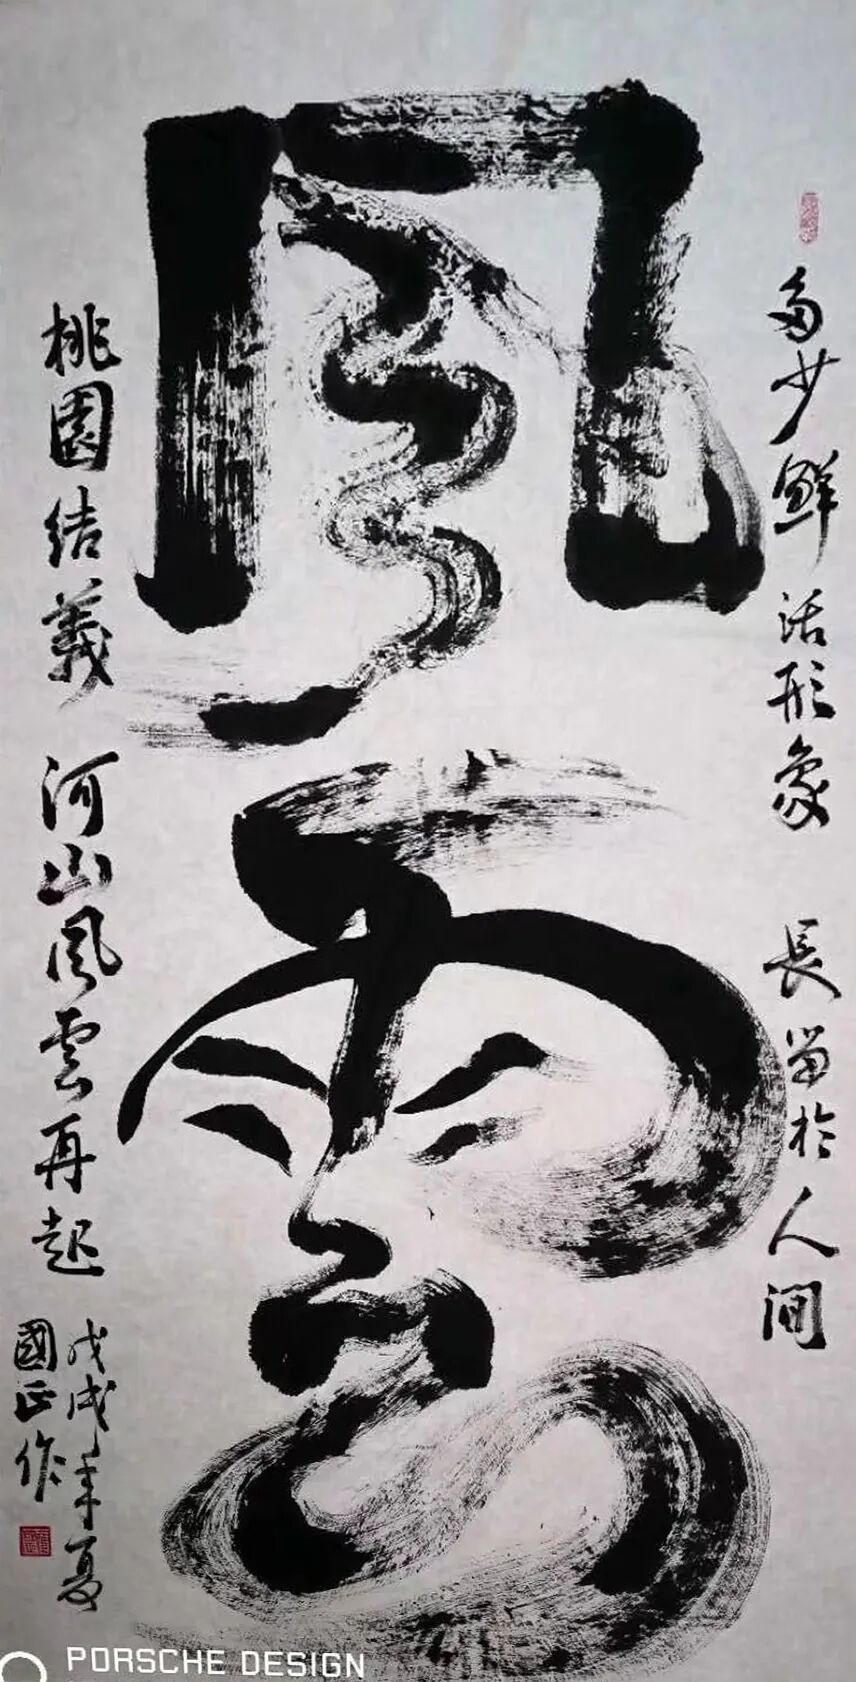 風雲
多少鮮活形象 長留於人间
桃園结義 河山风雲再起
戊戌年夏
國正作
PORSCHE DESIGN